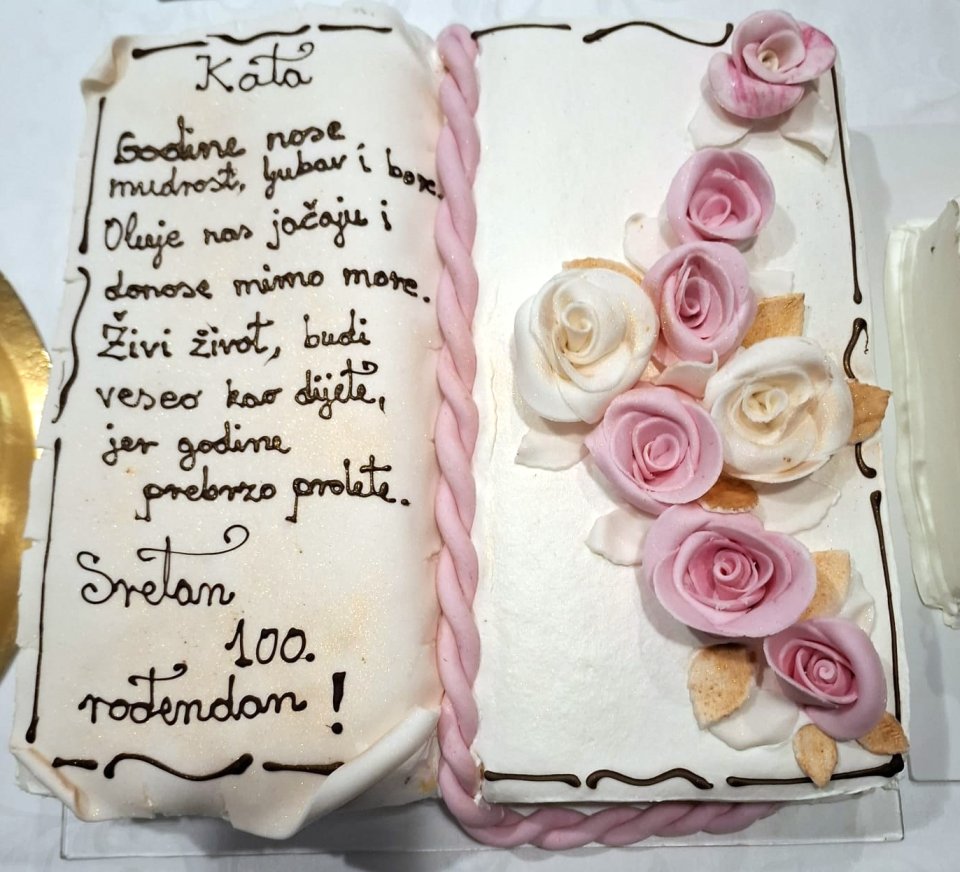 Kata
Godine nose
mudrost, ljubav i bore.
Oluje nas jačaju i
donose mirno more.
Živi život, budi
veseo kao dijete,
jer godine
prebrzo prolete.
Sretan
100.
rođendan !